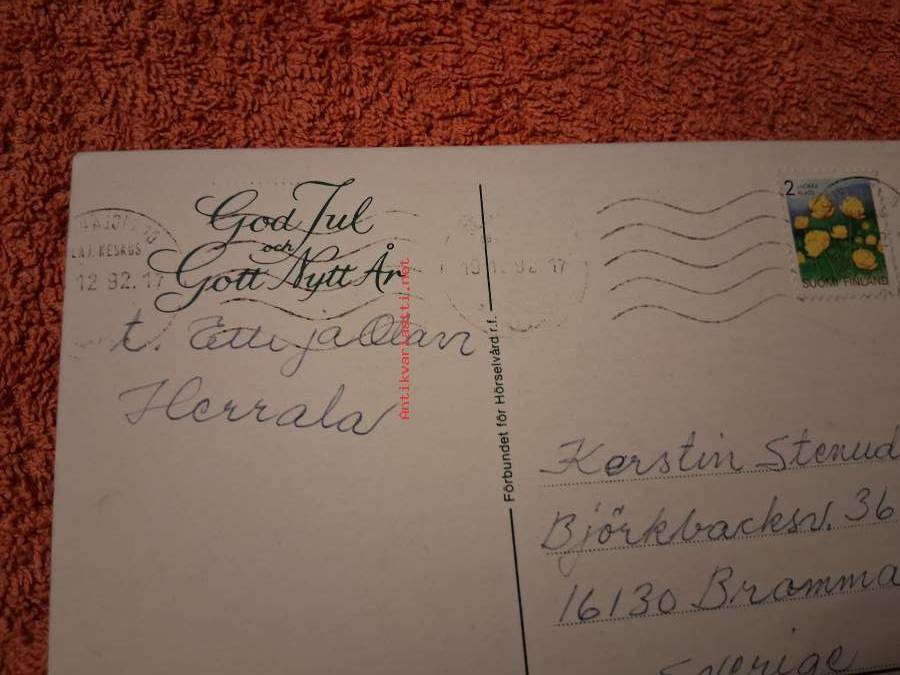 God Jul
och
Gott Nytt År
LAJ. KESKUS
12 92.17
t. Etti ja Olavi
Herrala
Antikvariaatti.net
Förbundet för Hörselvård r.f.
19 12 92 17
2
SUOMI FINLAND
Kerstin Stenud
Björkbacksv. 36
16130 Bromma
Sverige